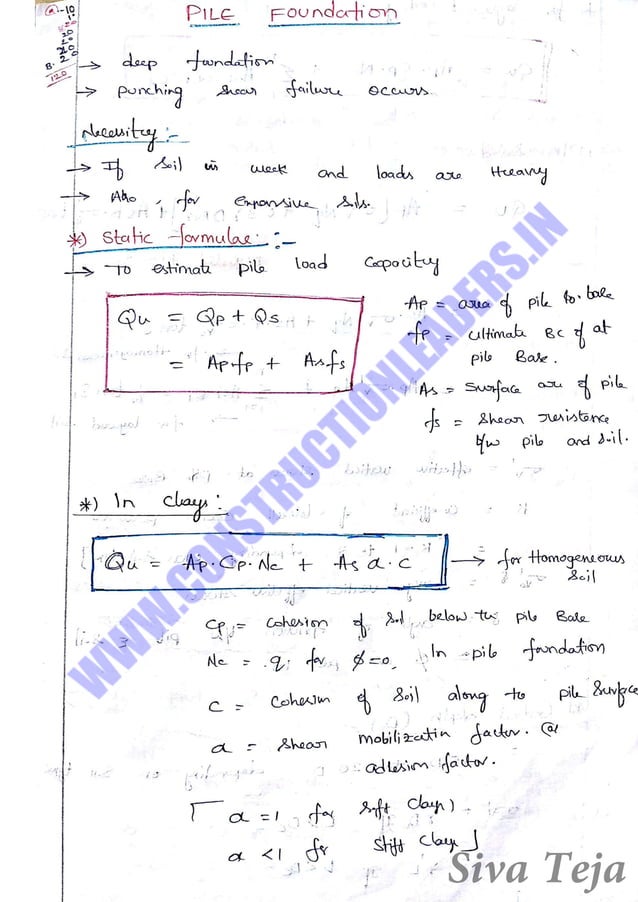 PILE Foundation
→ deep foundation
→ punching shear failure occurs
Necessity :-
→ If soil is week and loads are Heavy
→ Also, for Expansive soils.
*) Static formulae :-
→ To estimate pile load capacity
Qu = Qp + Qs
= Ap.fp + As fs
Ap = area of pile to base
fp = ultimate BC of at
pile Base.
As = surface are of pile
fs = shear resistence
b/w pile and soil.
*) In clays :
Qu = Ap. Cp. Nc + As α. c → for Homogeneous
soil
Cp = cohesion of soil below the pile Base
Nc = 9; for φ=0, In pile foundation
c = cohesion of soil along to pile surface
α = shear mobilizatin factor. @
adhesion factor.
α = 1 for soft clays
α < 1 for stiff clays
WWW.CONSTRUCTIONLEADERS.IN
Siva Teja